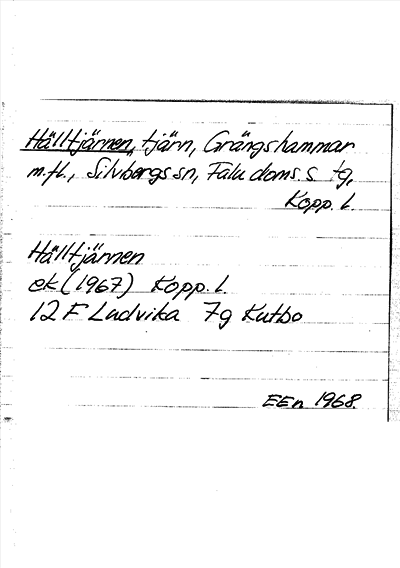 Hälltjärnen, tjärn, Grängshammar
m.fl., Silvbergs sn, Falu doms. s tg,
Kopp. l.
Hälltjärnen
ek (1967) Kopp. l.
12 F Ludvika 7g Kutbo
EEn 1968.